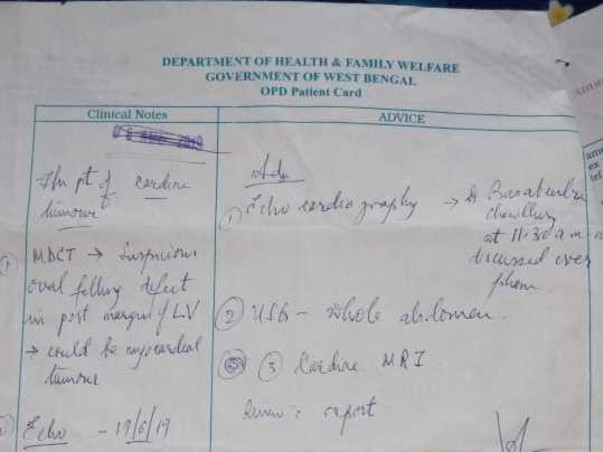 DEPARTMENT OF HEALTH & FAMILY WELFARE
GOVERNMENT OF WEST BENGAL
OPD Patient Card
Clinical Notes
pt of cardiac
tumour
① MDCT → Suspicious
oval filling defect
in post margin of LV
→ could be myocardial
tumour
Echo - 19/6/19
ADVICE
Adv
① Echo cardiography → Dr
at 11.30 a.m
discussed over
phone
② USG - whole abdomen.
③ Cardiac MRI
Review c report